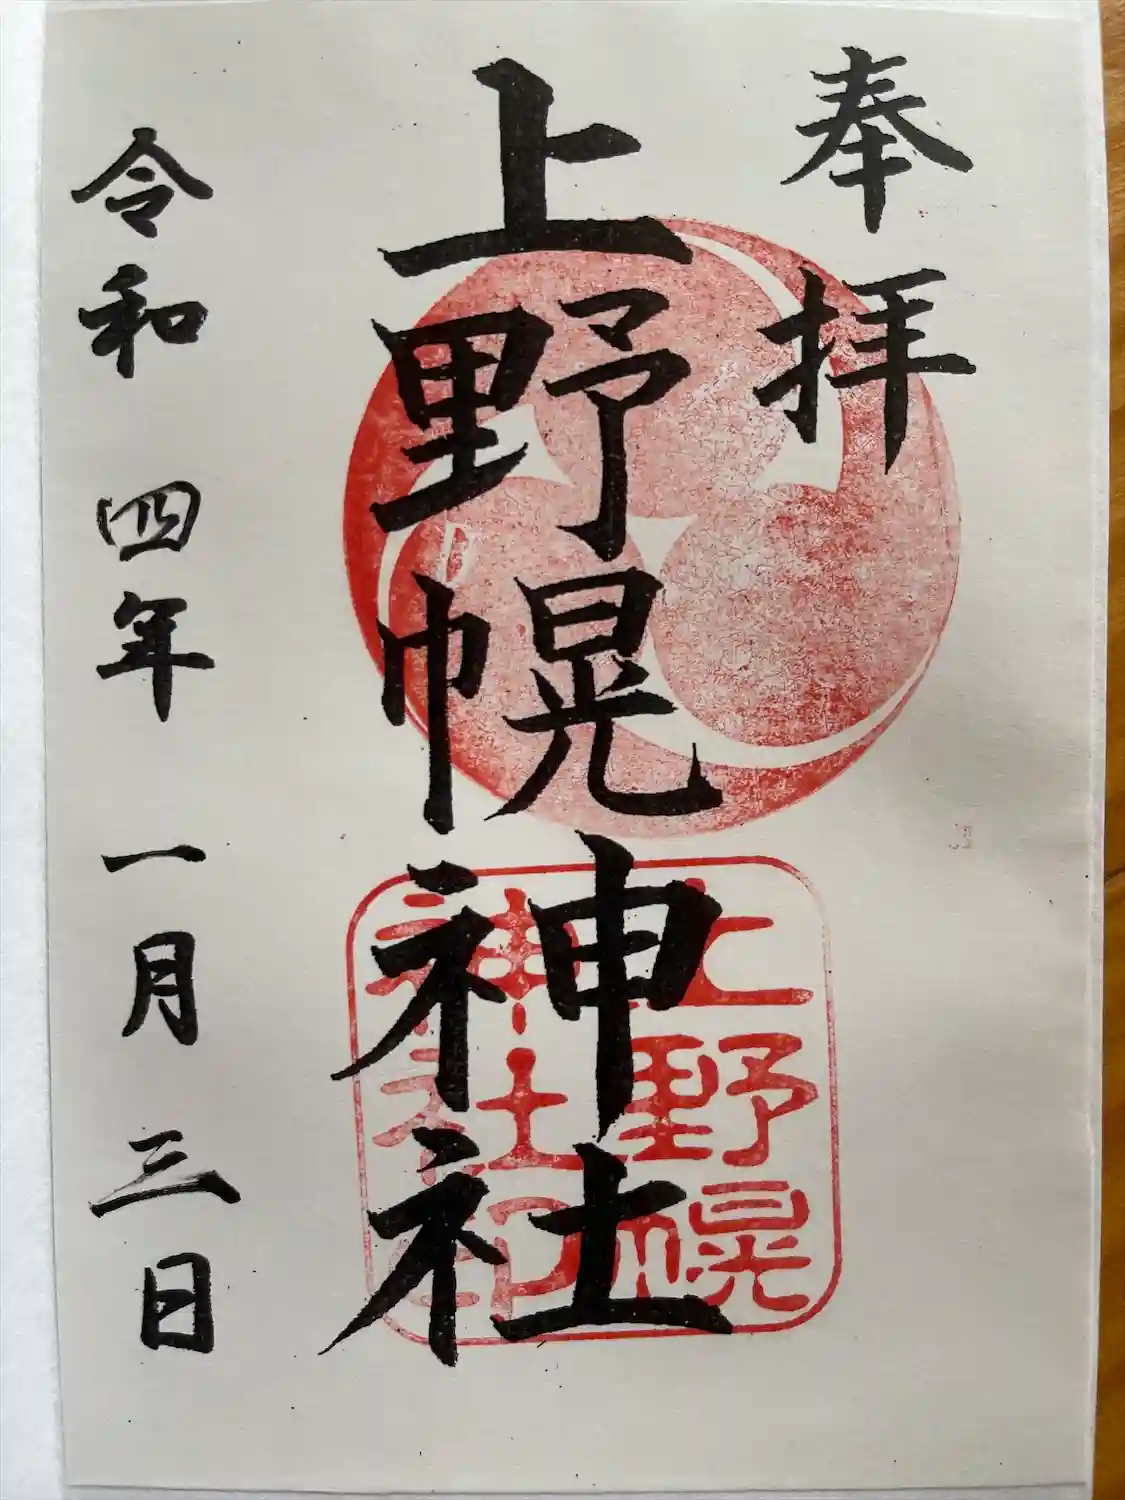 奉拝
上野幌神社
上野幌
神社印
令和四年一月三日